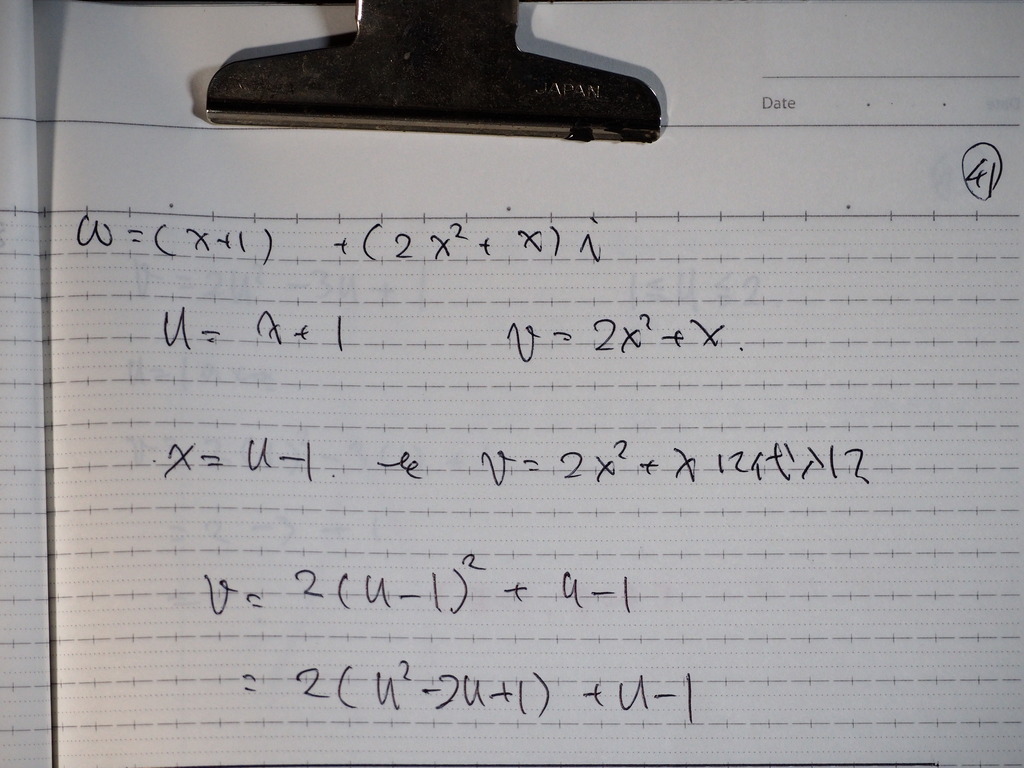 JAPAN
Date
41
ω = (x+1) + (2x² + x) i
u = x + 1 v = 2x² + x.
x = u - 1. を v = 2x² + x に代入して
v = 2(u-1)² + u-1
= 2(u²-2u+1) + u-1